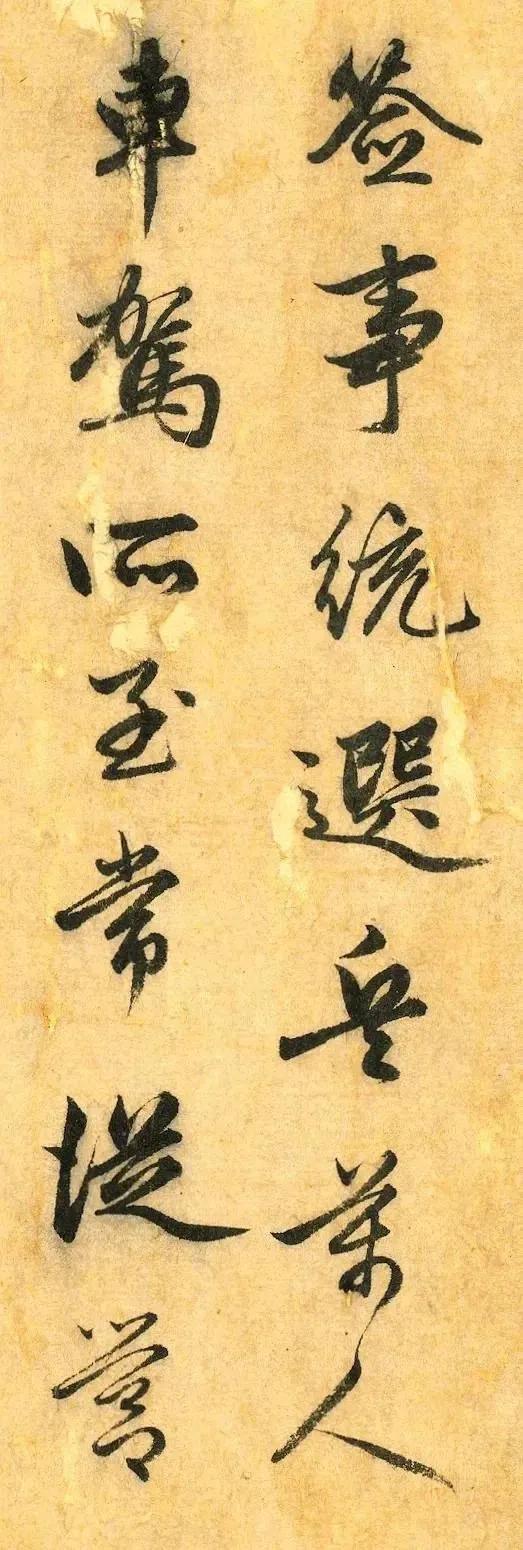 签事統選兵萬人
車駕所至常從營